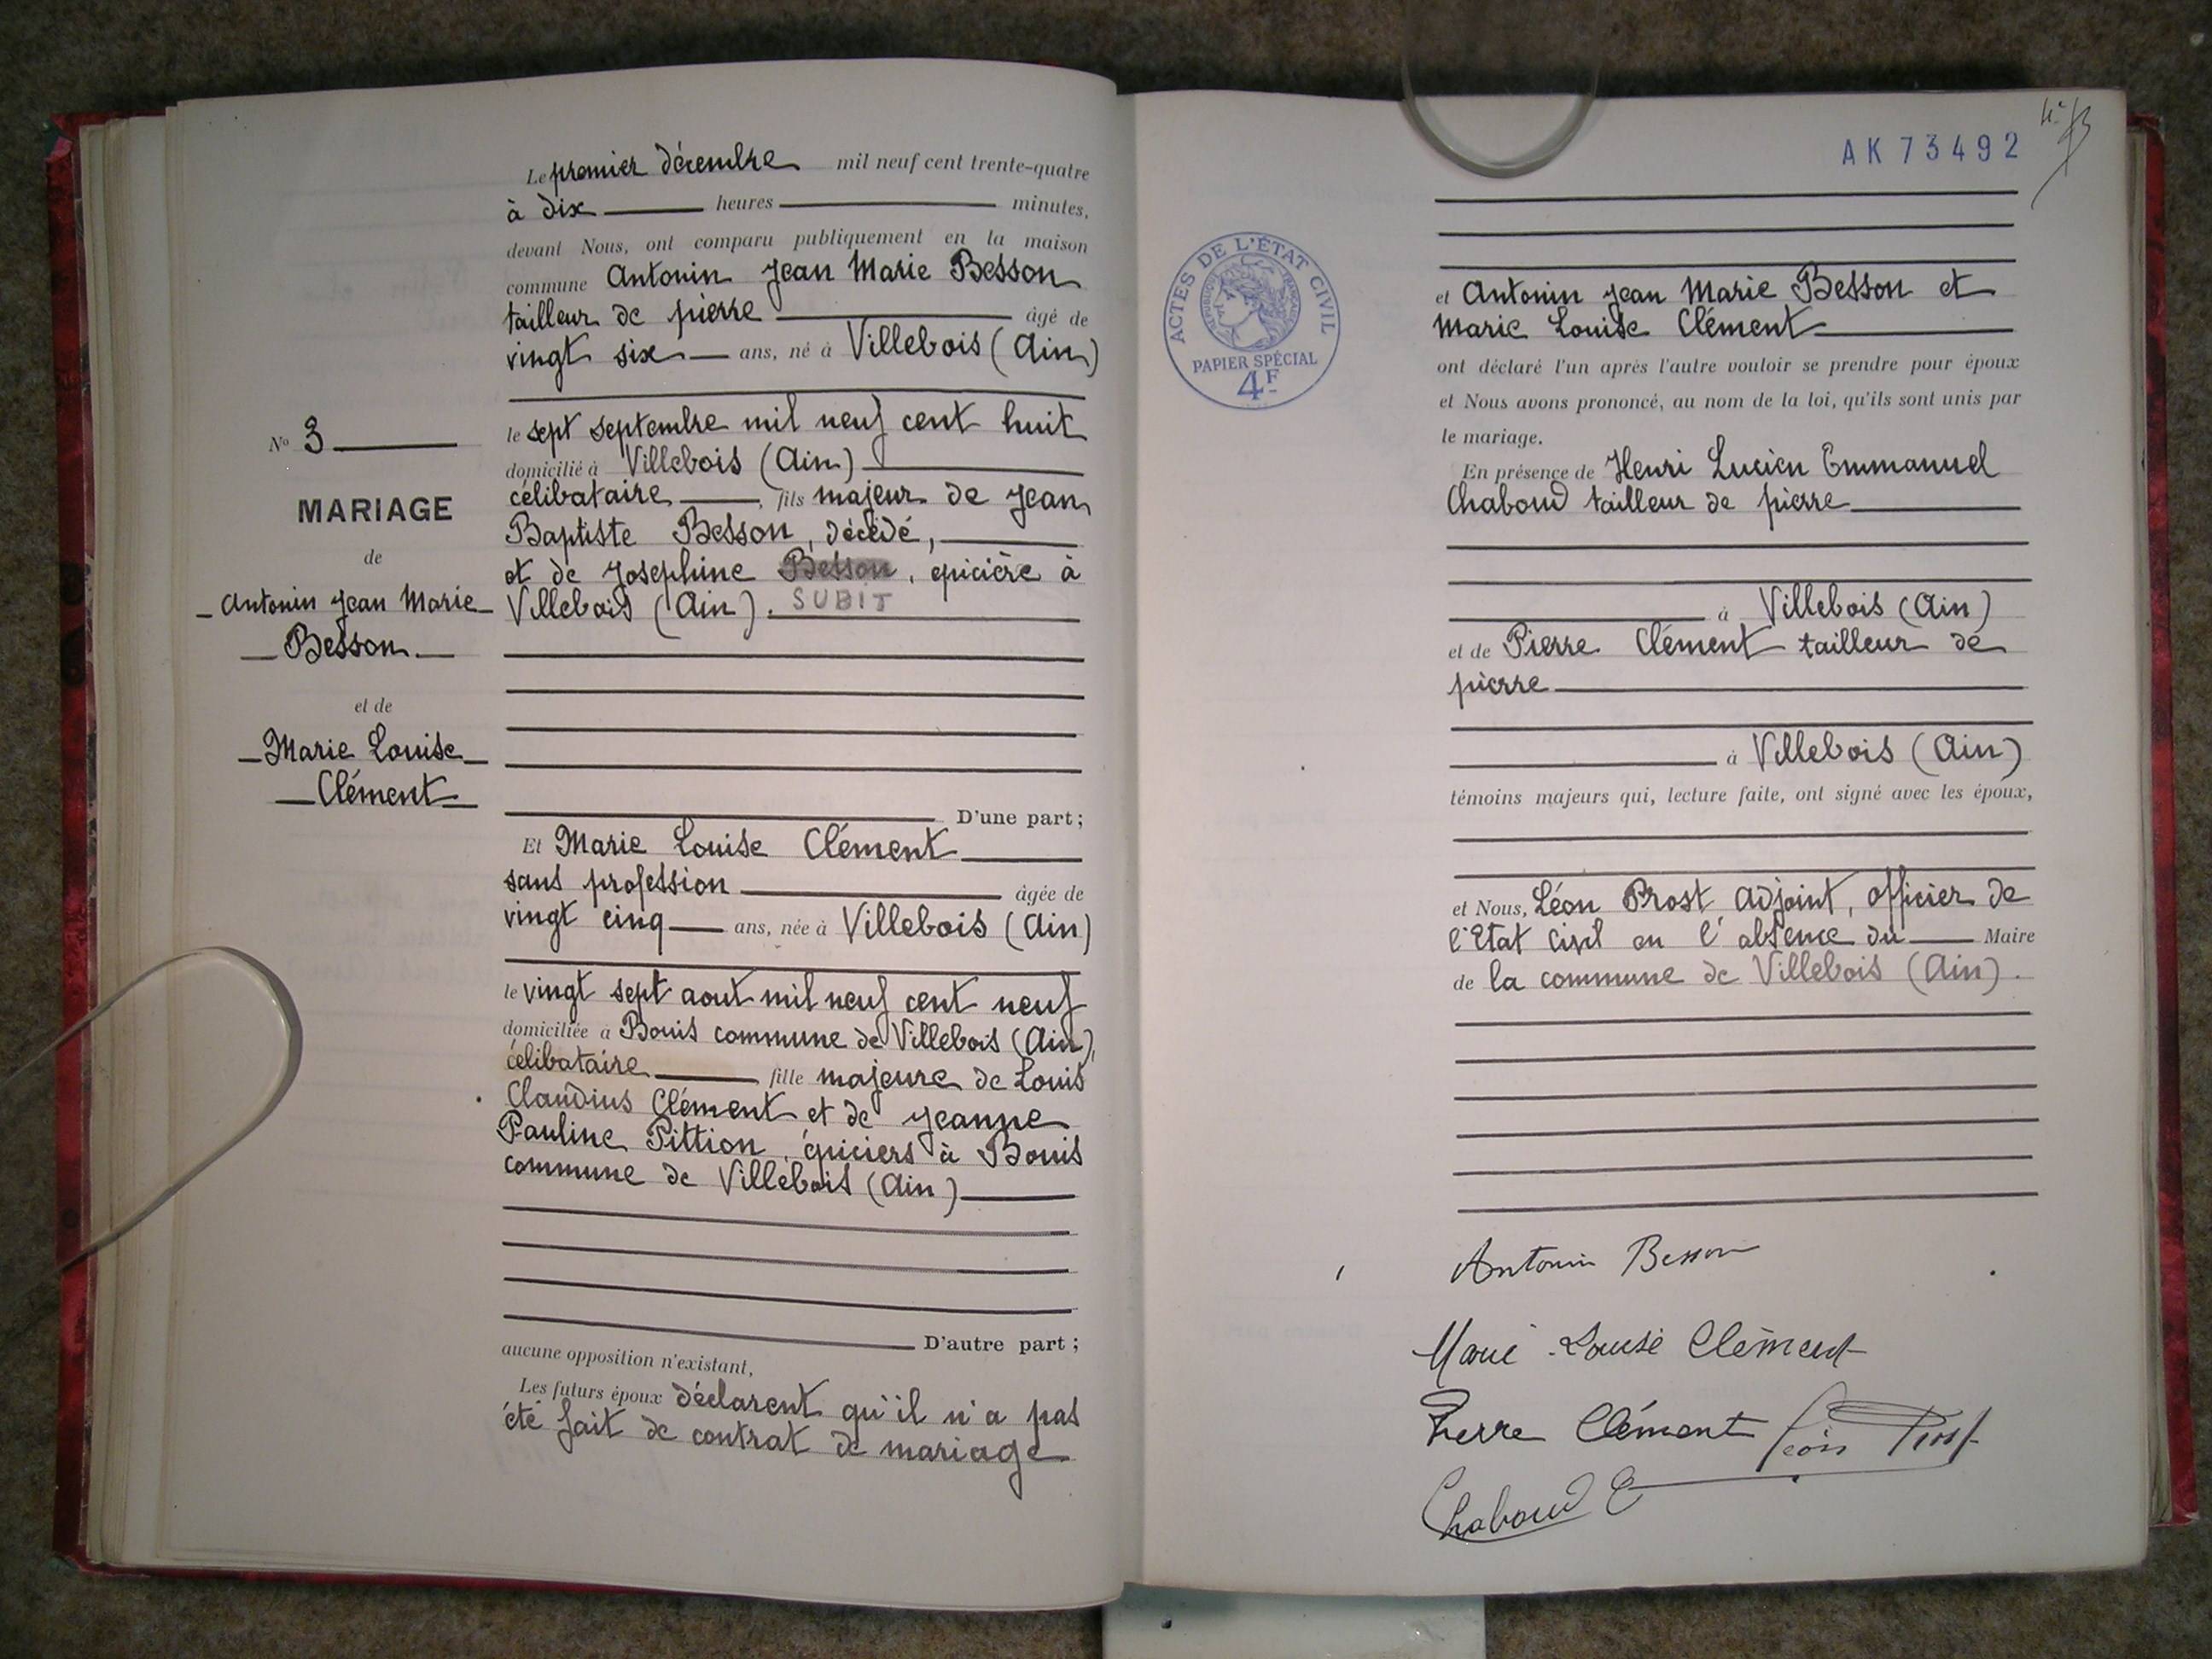 Le premier décembre mil neuf cent trente-quatre
à dix heures minutes,
devant Nous, ont comparu publiquement en la maison
commune Antonin Jean Marie Besson
tailleur de pierre âgé de
vingt six ans, né à Villebois (Ain)
le sept septembre mil neuf cent huit
domicilié à Villebois (Ain)
célibataire, fils majeur de Jean
Baptiste Besson, décédé,
et de Josephine Besson, epicière à
Villebois (Ain). SUBIT
D'une part;
Et Marie Louise Clément
sans profession âgée de
vingt cinq ans, née à Villebois (Ain)
le vingt sept aout mil neuf cent neuf
domiciliée à Bouis commune de Villebois (Ain),
célibataire fille majeure de Louis
Claudius Clément et de Jeanne
Pauline Pittion, épiciers à Bouis
commune de Villebois (Ain)
D'autre part;
aucune opposition n'existant,
Les futurs époux déclarent qu'il n'a pas
été fait de contrat de mariage
No 3
MARIAGE
de
Antonin Jean Marie
Besson
et de
Marie Louise
Clément
AK 73492
ACTES DE L'ÉTAT CIVIL
RÉPUBLIQUE FRANÇAISE
PAPIER SPÉCIAL
4F
et Antonin Jean Marie Besson et
Marie Louise Clément
ont déclaré l'un après l'autre vouloir se prendre pour époux
et Nous avons prononcé, au nom de la loi, qu'ils sont unis par
le mariage.
En présence de Henri Lucien Emmanuel
Chaboud tailleur de pierre
à Villebois (Ain)
et de Pierre Clément tailleur de
pierre
à Villebois (Ain)
témoins majeurs qui, lecture faite, ont signé avec les époux,
et Nous, Léon Prost Adjoint, officier de
l'Etat Civil en l'absence du Maire
de la commune de Villebois (Ain).
Antonin Besson
Marie Louise Clément
Pierre Clément Léon Prost
Chaboud E